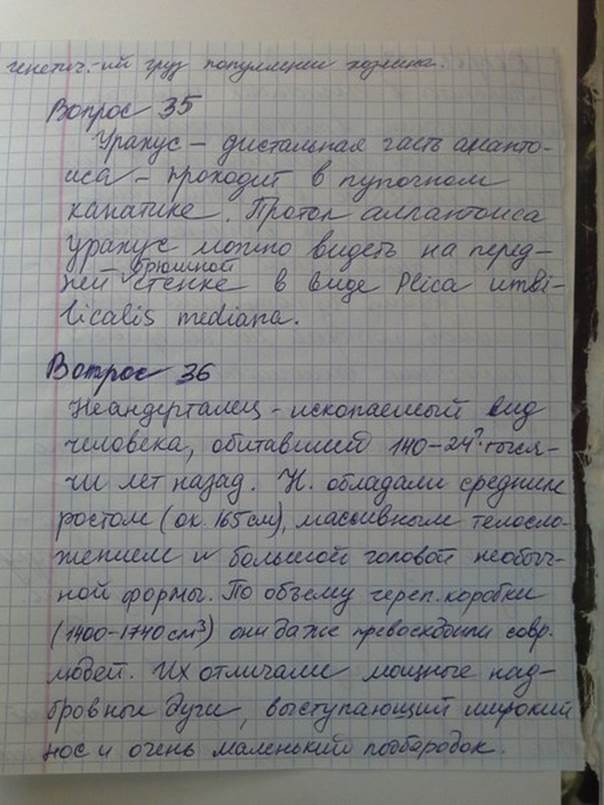 генетич.-ий груз популяции хозяина.
Вопрос 35
Урахус – дистальная часть аланто-
иса – проходит в пупочном
канатике. Проток аллантоиса
урахус можно видеть на перед-
ней брюшной стенке в виде Plica umbi-
licalis mediana.
Вопрос 36
Неандерталец – ископаемый вид
человека, обитавший 140–24? тыся-
чи лет назад. Н. обладали средним
ростом (ок. 165 см), массивным телосло-
жением и большой головой необыч-
ной формы. По объему череп. коробки
(1400–1740 см³) они даже превосходили совр.
людей. Их отличали мощные над-
бровные дуги, выступающий широкий
нос и очень маленький подбородок.